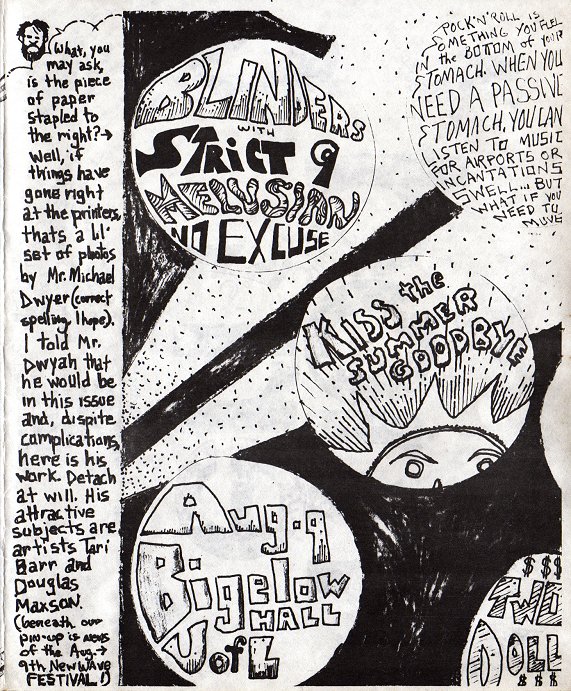 (What, you
may ask,
is the piece
of paper
stapled to
the right?→
Well, if
things have
gone right
at the printers,
thats a lil'
set of photos
by Mr. Michael
Dwyer (correct
spelling, I hope).
I told Mr.
Dwyah that
he would be
in this issue
and, dispite
complications,
here is his
work. Detach
at will. His
attractive
subjects are
artists Tari
Barr and
Douglas
Maxson.
(beneath our
pin-up is news
of the Aug.→
9th New Wave
FESTIVAL!)
BLINDERS
WITH
STRICT 9
MELUSIAN
NO EXCUSE
ROCK'N'ROLL IS
SOMETHING YOU FEEL
IN the BOTTOM OF YOUR
STOMACH. WHEN YOU
NEED A PASSIVE
STOMACH, YOU CAN
LISTEN TO MUSIC
FOR AIRPORTS OR
INCANTATIONS
SWELL... BUT
WHAT IF YOU
NEED TO
MOVE
KISS the
SUMMER
GOODBYE
Aug. 9
Bigelow
HALL
U of L
$ $ $
TWO
DOLL
$ $ $